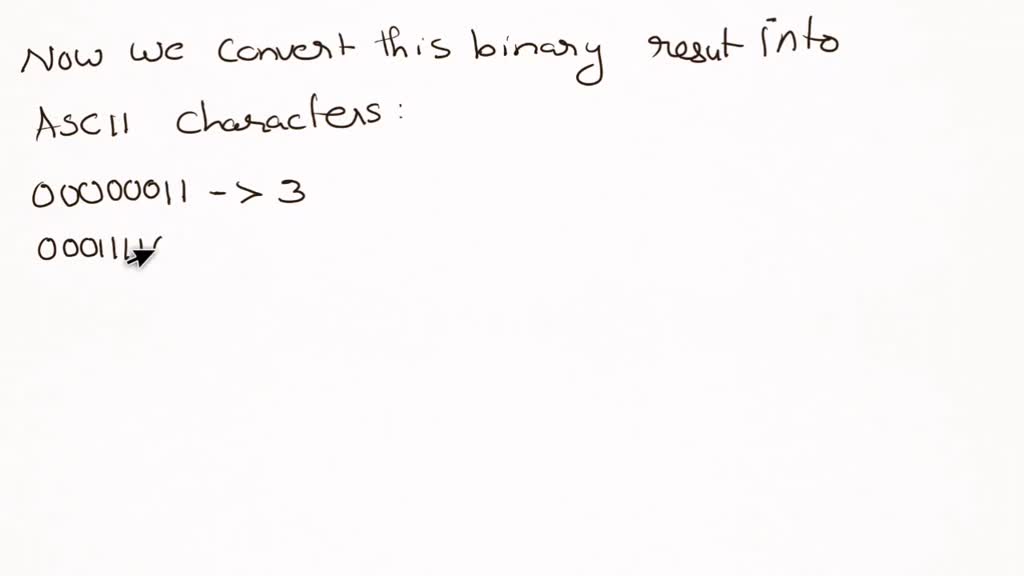 Now we convert this binary resut into
ASCII characters:
00000011 -> 3